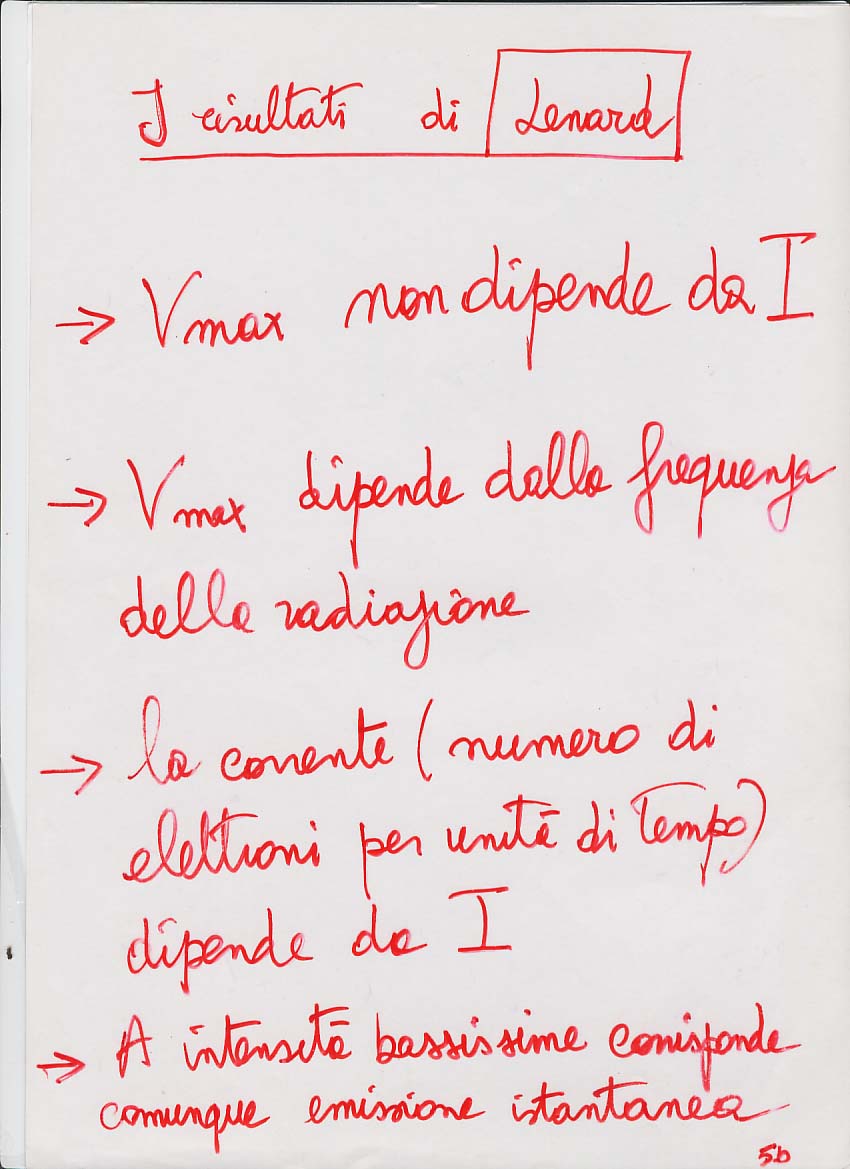 I risultati di Lenard
→ Vmax non dipende da I
→ Vmax dipende dalla frequenza
della radiazione
→ la corrente (numero di
elettroni per unità di tempo)
dipende da I
→ A intensità bassissime corrisponde
comunque emissione istantanea
5b